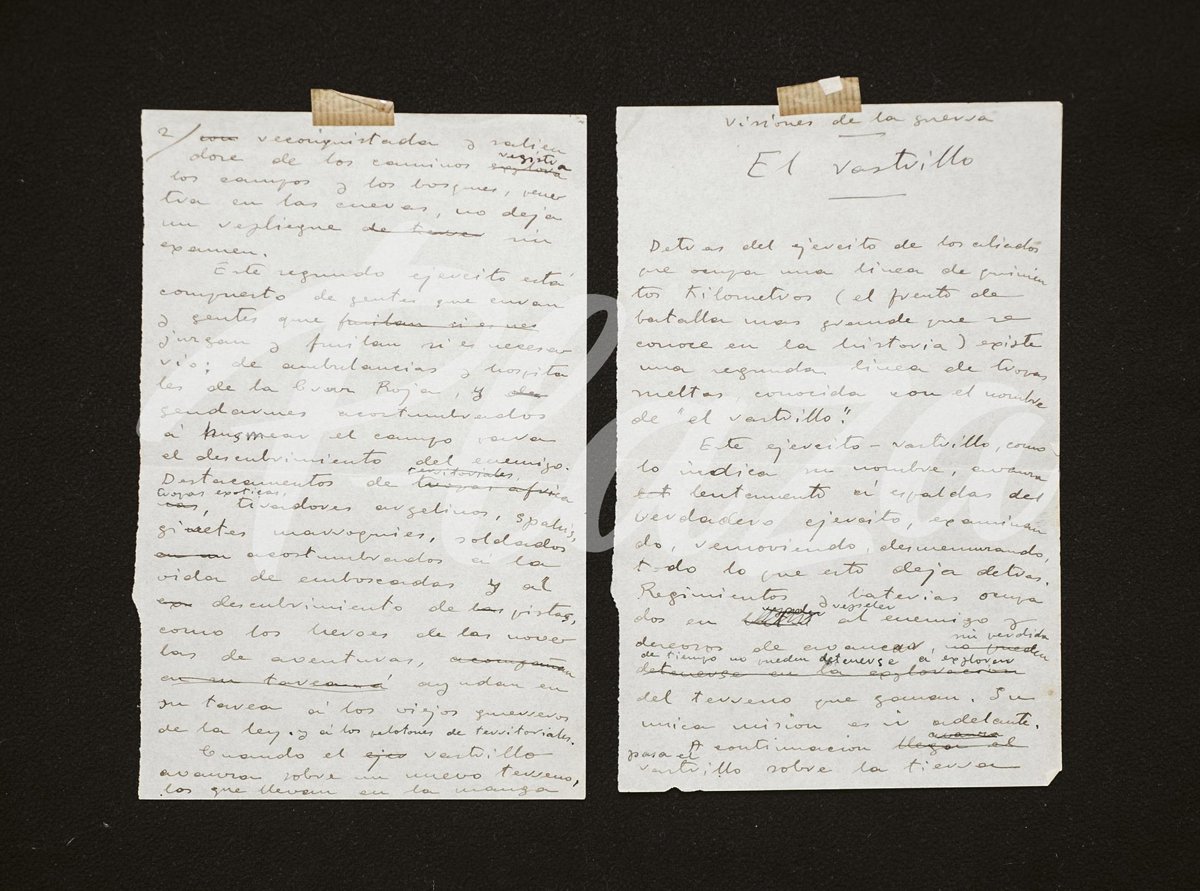 Visiones de la guerra
El rastrillo
Detras del ejercito de los aliados
que ocupa una linea de quinien
tos Kilometros (el frente de
batalla mas grande que se
conoce en la historia) existe
una segunda linea de tropas
sueltas, conocida con el nombre
de "el rastrillo".
Este ejercito-rastrillo, como
lo indica su nombre, avanza
lentamente á espaldas del
verdadero ejercito, examinan
do, removiendo, desmenuzando,
todo lo que este deja detras.
Regimientos y baterias ocupa
repeler y repeler
dos en al enemigo y
sin perdida
deseosos de avanzar, no pueden
de tiempo no pueden detenerse á explorar
detenerse en la exploracion
del terreno que ganan. Su
unica mision es ir adelante.
avanza
A continuacion llega el
pasa el
rastrillo sobre la tierra
2/ reconquistada y salien
registra
dose de los caminos explora
los campos y los bosques, pener
tra en las cuevas, no deja
un repliegue de terre sin
examen.
Este segundo ejercito está
compuesto de gentes que curan
y gentes que fusilan si es nes
juzgan y fusilan si es necesar
rio; de ambulancias y hospita
les de la Cruz Roja, y de
gendarmes acostumbrados
á husmear el campo para
el descubrimiento del enemigo.
territoriales,
Destacamentos de tropas africa
tropas exoticas,
nas, tiradores argelinos, spahis,
ginetes marroquies, soldados
acostumbrados á la
vida de emboscadas y al
descubrimiento de las pistas,
como los heroes de las nover
las de aventuras, acompañan
en su tarea á ayudan en
su tarea á los viejos guerreros
de la ley. y á los pelotones de territoriales.
Cuando el ejer rastrillo
avanza sobre un nuevo terreno,
los que llevan en la manga